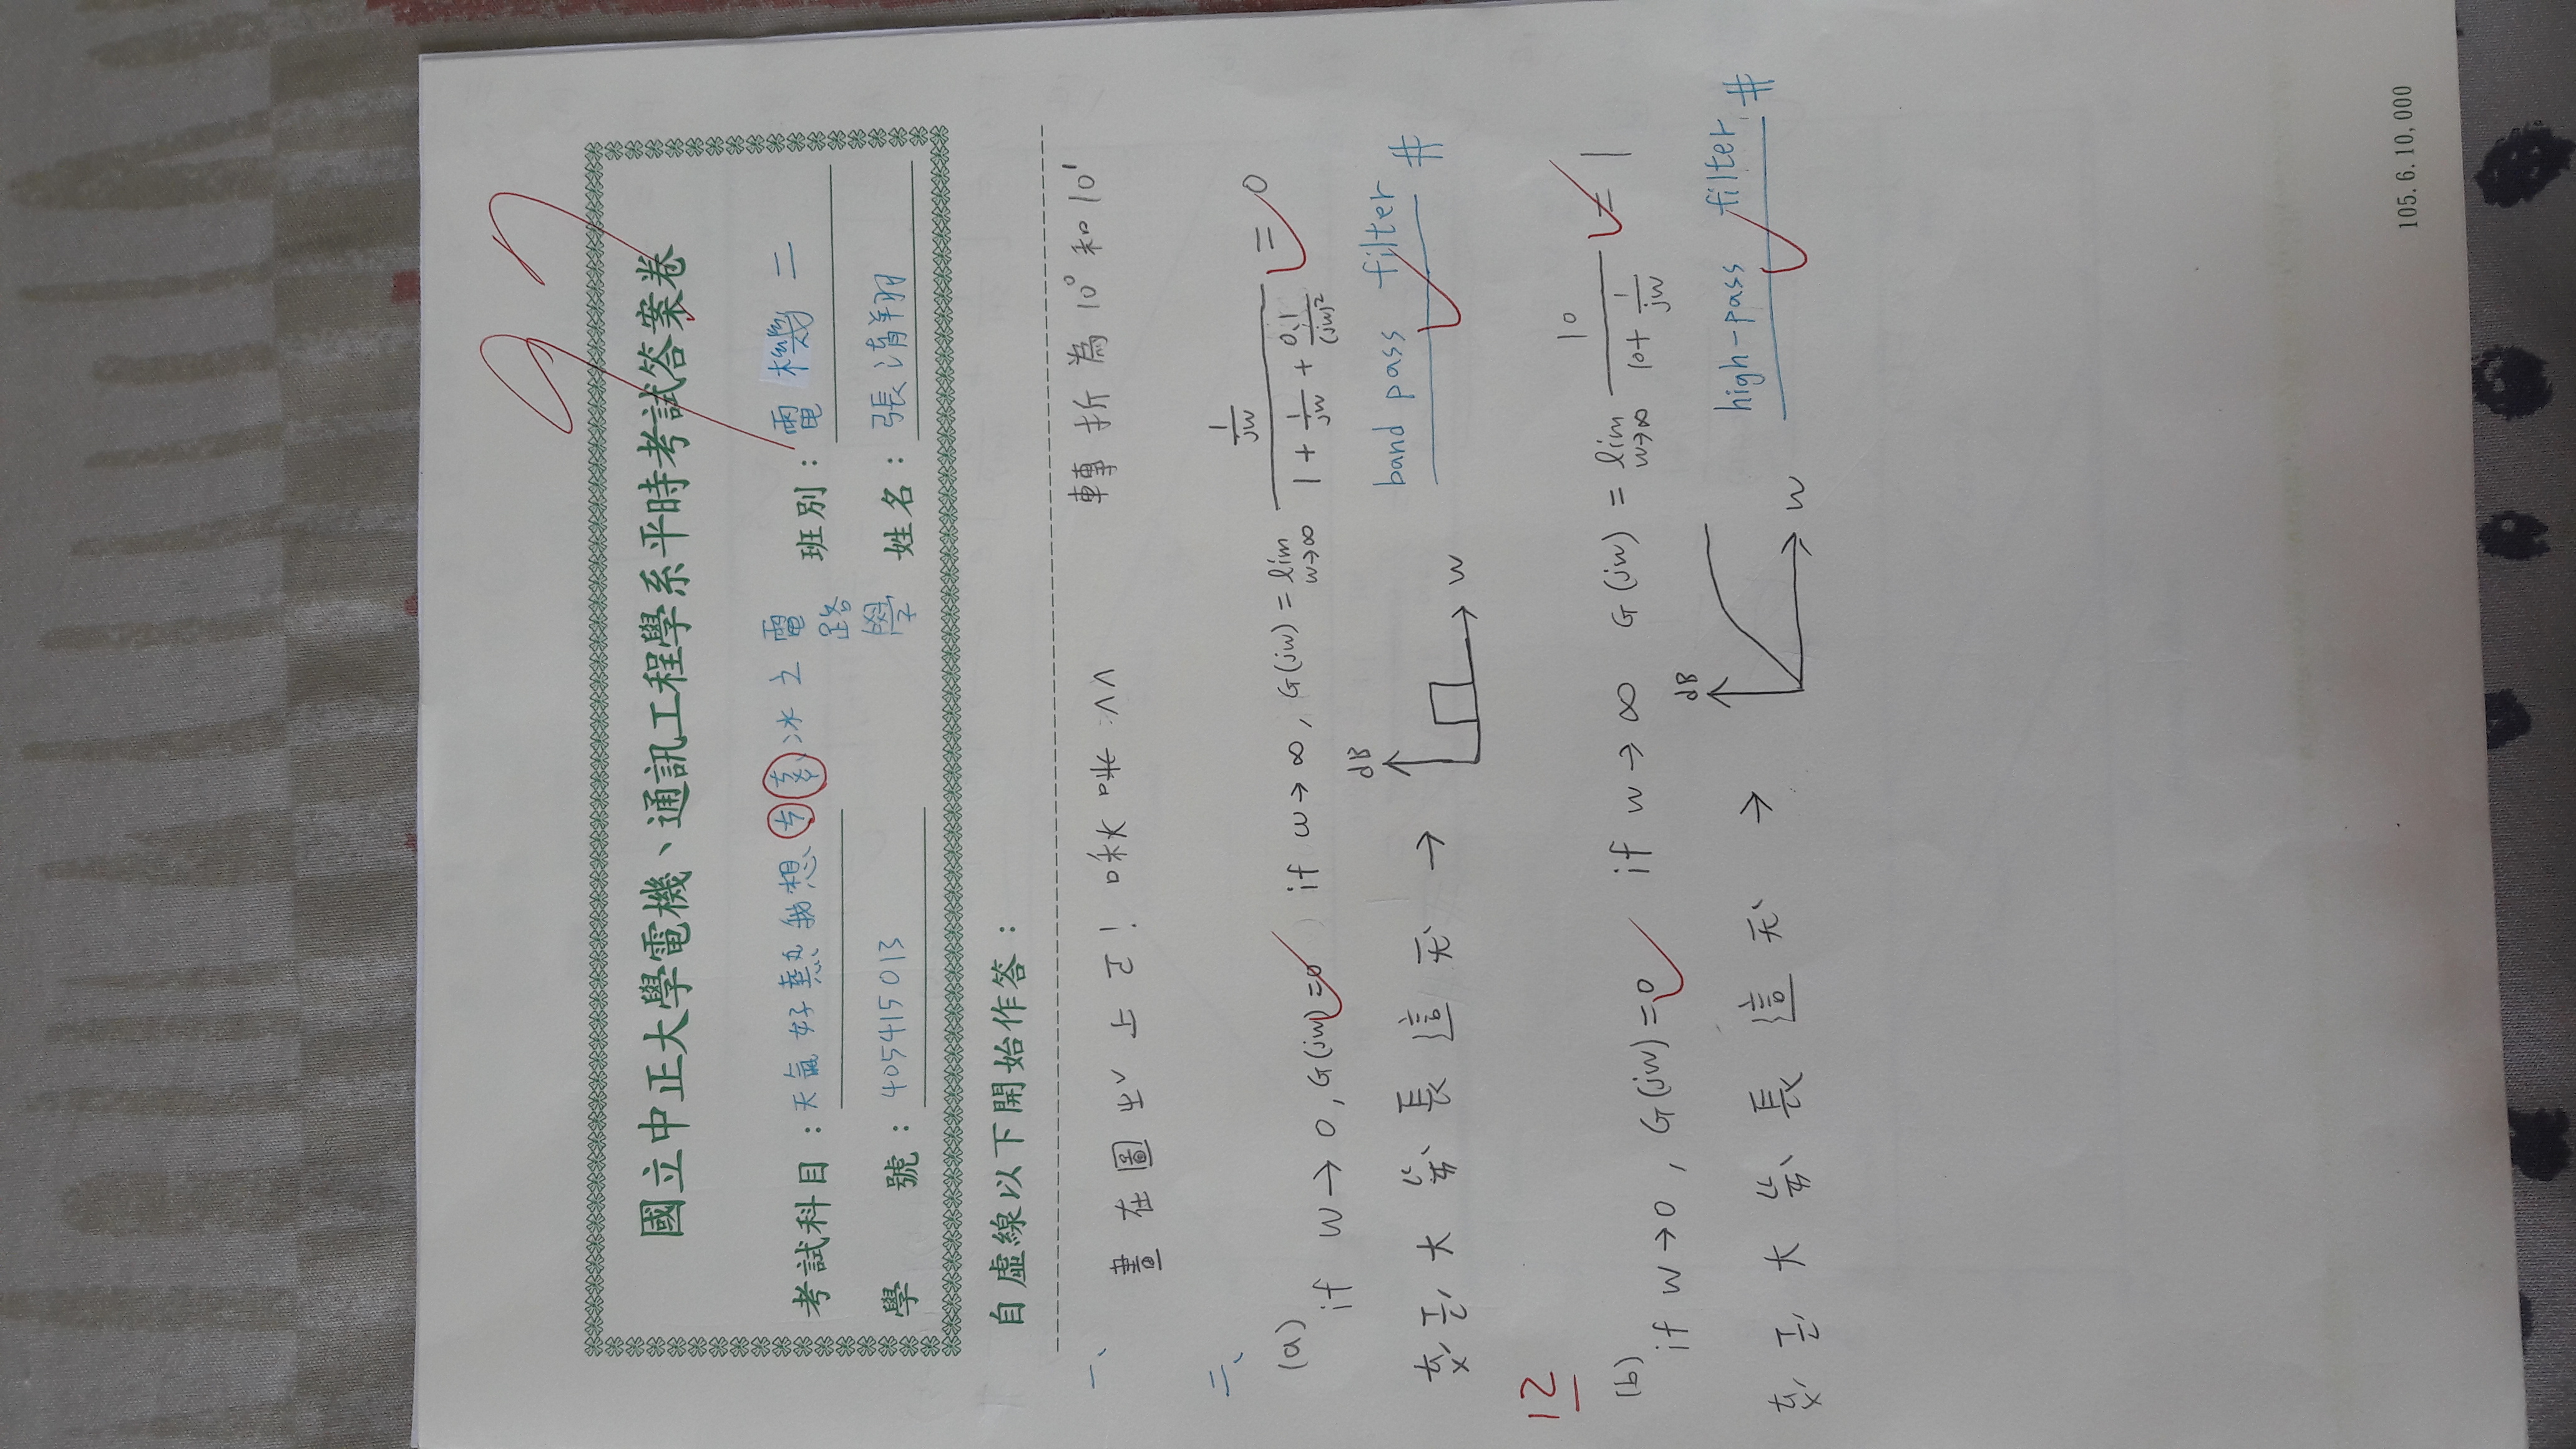 97
國立中正大學電機、通訊工程學系平時考試答案卷
考試科目：天氣好熱我想 冰之電路學 班別：電機二
學 號：405415013 姓名：張清翔
自虛線以下開始作答：
一、
畫在圖 上 ! 啾咪 ^^ 轉折為 10⁰ 和 10¹
二、
(a) if w → 0, G(jw) = 0 if w → ∞, G(jw) = lim w→∞ (1/jw) / (1 + 1/jw + 0.1/(jw)²) = 0
大 長這 → dB w band pass filter #
12
(b) if w → 0, G(jw) = 0 if w → ∞ G(jw) = lim w→∞ 10 / (10 + 1/jw) = 1
大 長這 → dB w high-pass filter #
105.6.10,000